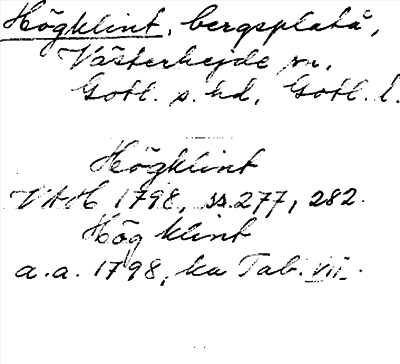 Högklint, bergsplatå,
Västerhejde sn,
Gotl. s. hd, Gotl. l.
Högklint
VAH 1798, ss. 277, 282.
Högklint
a. a. 1798, ka Tab. VII.